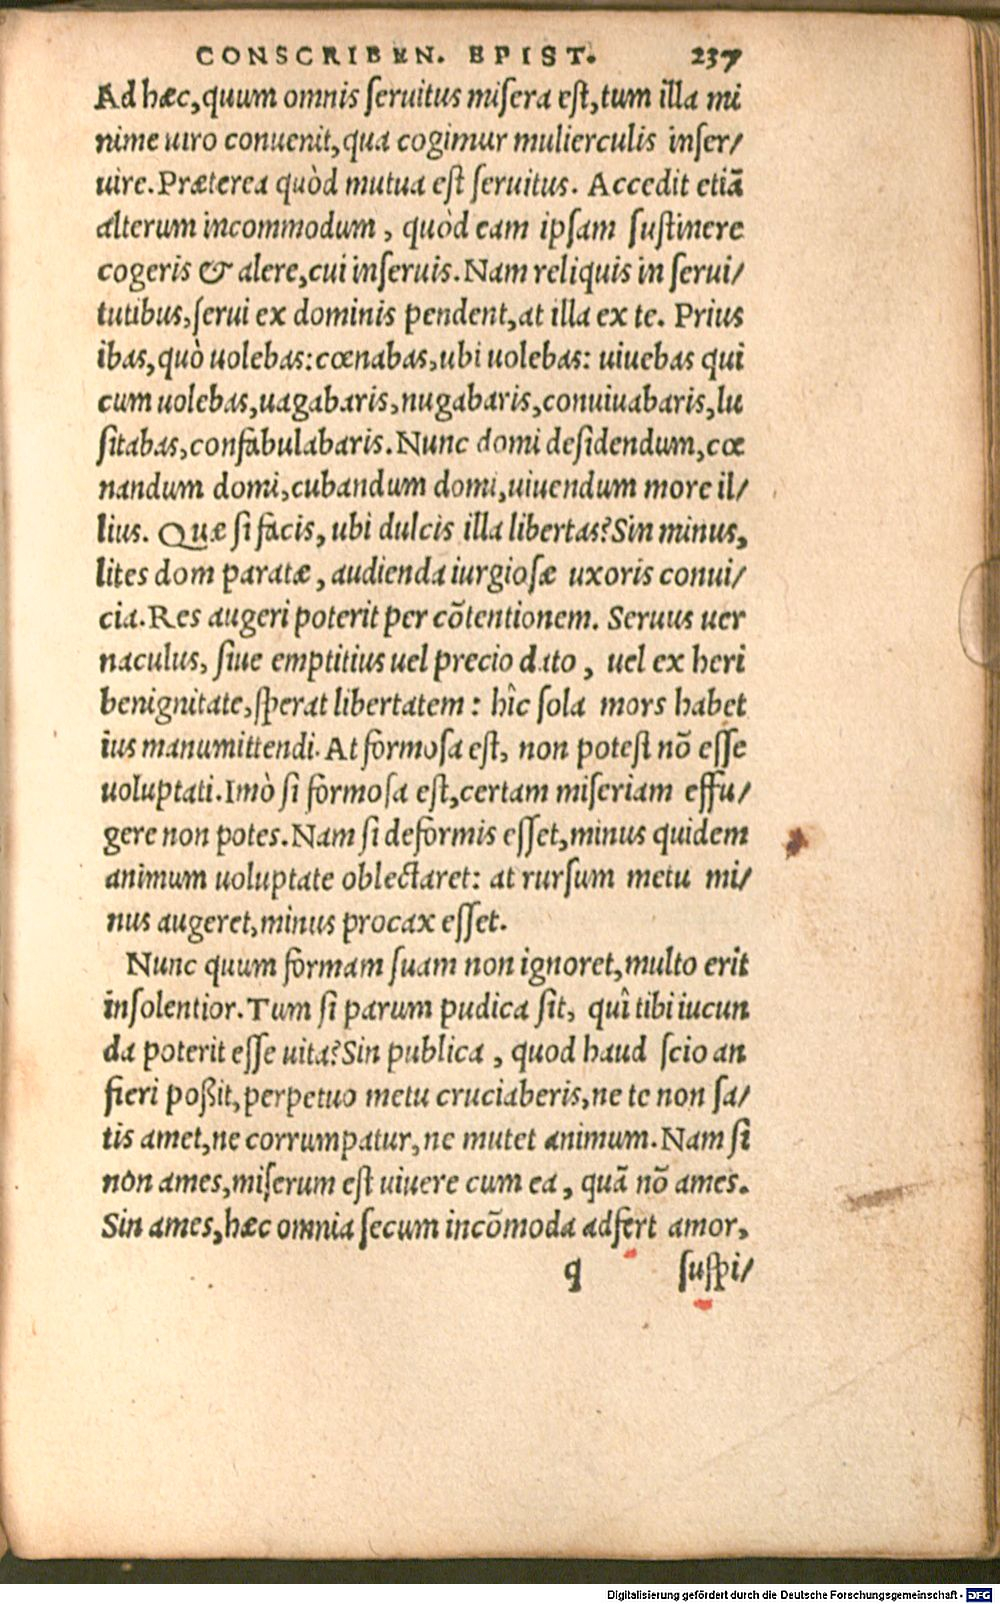 CONSCRIBEN. EPIST. 237
Ad hæc, quum omnis ſeruitus miſera eſt, tum illa mi
nime uiro conuenit, qua cogimur mulierculis inſer/
uire. Præterea quòd mutua eſt ſeruitus. Accedit etiã
alterum incommodum, quòd eam ipſam ſuſtinere
cogeris & alere, cui inſeruis. Nam reliquis in ſerui/
tutibus, ſerui ex dominis pendent, at illa ex te. Prius
ibas, quò uolebas: cœnabas, ubi uolebas: uiuebas qui
cum uolebas, uagabaris, nugabaris, conuiuabaris, lu
ſitabas, confabulabaris. Nunc domi deſidendum, cœ
nandum domi, cubandum domi, uiuendum more il/
lius. Quæ ſi facis, ubi dulcis illa libertas? Sin minus,
lites dom paratæ, audienda iurgioſæ uxoris conui/
cia. Res augeri poterit per cõtentionem. Seruus uer
naculus, ſiue emptitius uel precio dato, uel ex heri
benignitate, ſperat libertatem: hîc ſola mors habet
ius manumittendi. At formoſa eſt, non poteſt nõ eſſe
uoluptati. Imò ſi formoſa eſt, certam miſeriam effu/
gere non potes. Nam ſi deformis eſſet, minus quidem
animum uoluptate oblectaret: at rurſum metu mi/
nus augeret, minus procax eſſet.
Nunc quum formam ſuam non ignoret, multo erit
inſolentior. Tum ſi parum pudica ſit, quî tibi iucun
da poterit eſſe uita? Sin publica, quod haud ſcio an
fieri poßit, perpetuo metu cruciaberis, ne te non ſa/
tis amet, ne corrumpatur, ne mutet animum. Nam ſi
non ames, miſerum eſt uiuere cum ea, quã nõ ames.
Sin ames, hæc omnia ſecum incõmoda adfert amor,
q ſuſpi/
Digitalisierung gefördert durch die Deutsche Forschungsgemeinschaft - DFG